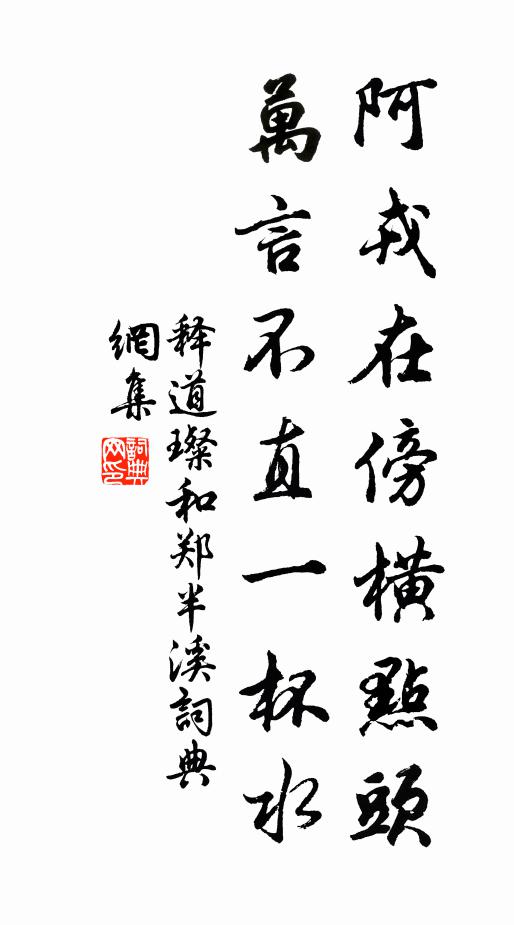 阿戎在傍橫點頭
萬言不直一杯水
释道璨和郑半溪詞典
網集
詞典網印